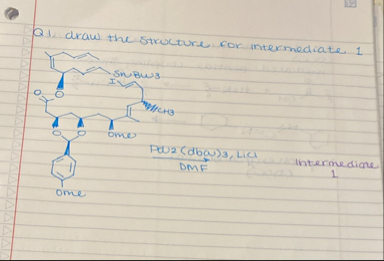 Q1. draw the structure for intermediate 1
SnBu3
I
CH3
O
O
O
O
ome
Pd2(dba)3, LiCl
DMF
Intermediate
1
ome